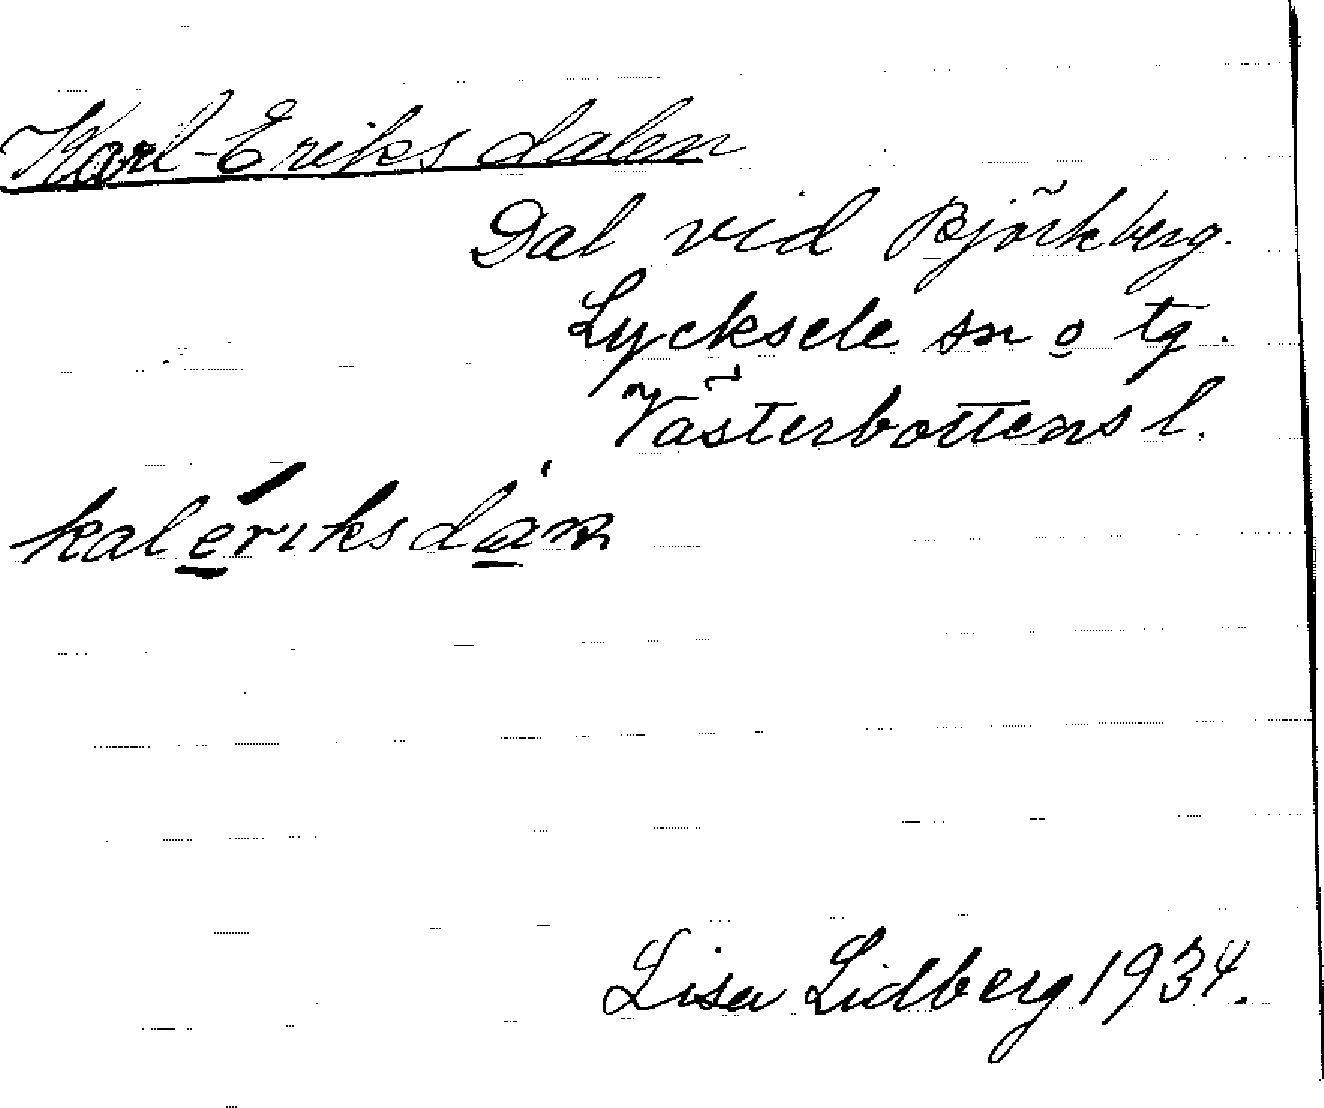 Karl-Eriksdalen
Dal vid Björkberg.
Lycksele sn o tg.
Västerbottens l.
kalériksdán
Lisa Lidberg 1934.